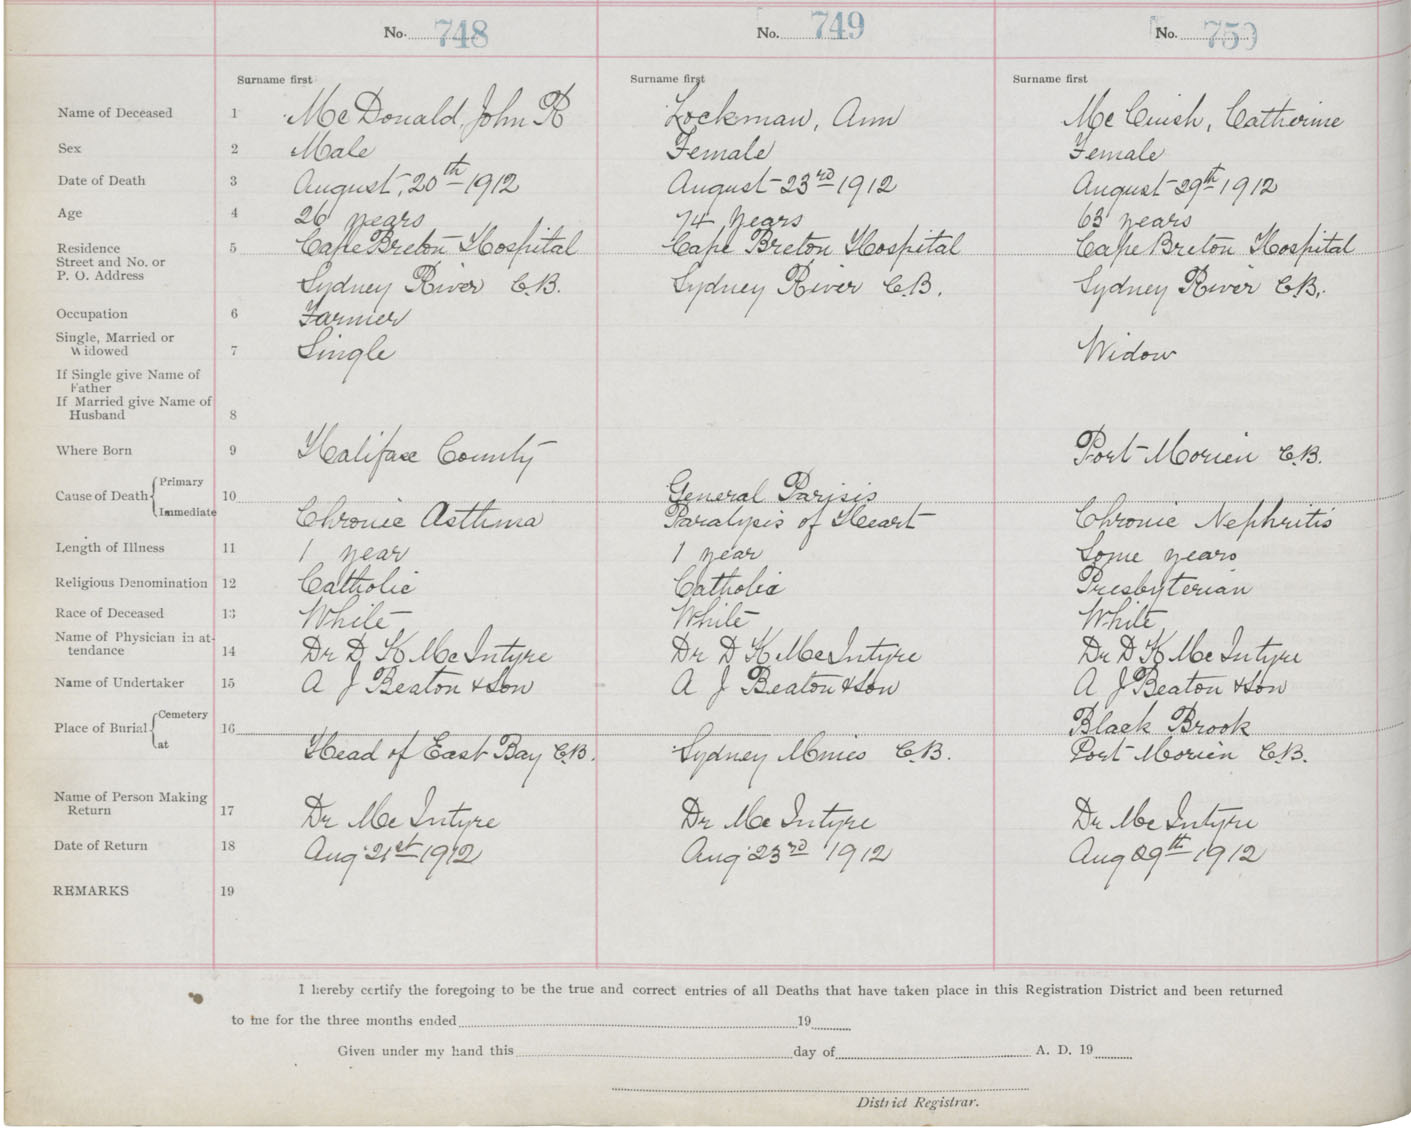 No. 748 No. 749 No. 750
Surname first Surname first Surname first
Name of Deceased 1 McDonald, John R Lockman, Ann McCuish, Catherine
Sex 2 Male Female Female
Date of Death 3 August, 20th 1912 August 23rd 1912 August 29th 1912
Age 4 26 years 74 years 63 years
Residence 5 Cape Breton Hospital Cape Breton Hospital Cape Breton Hospital
Street and No. or
P. O. Address Sydney River C.B. Sydney River C.B. Sydney River C.B.
Occupation 6 Farmer
Single, Married or
Widowed 7 Single Widow
If Single give Name of
Father
If Married give Name of
Husband 8
Where Born 9 Halifax County Port Morien C.B.
Primary General Parisis
Cause of Death 10
Immediate Chronic Asthma Paralysis of Heart Chronic Nephritis
Length of Illness 11 1 year 1 year Some years
Religious Denomination 12 Catholic Catholic Presbyterian
Race of Deceased 13 White White White
Name of Physician in at-
tendance 14 Dr D K McIntyre Dr D K McIntyre Dr D K McIntyre
Name of Undertaker 15 A J Beaton & Son A J Beaton & Son A J Beaton & Son
Cemetery Black Brook
Place of Burial 16
at Head of East Bay C.B. Sydney Mines C.B. Port Morien C.B.
Name of Person Making
Return 17 Dr McIntyre Dr McIntyre Dr McIntyre
Date of Return 18 Aug 21st 1912 Aug 23rd 1912 Aug 29th 1912
REMARKS 19
I hereby certify the foregoing to be the true and correct entries of all Deaths that have taken place in this Registration District and been returned
to me for the three months ended 19
Given under my hand this day of A. D. 19
District Registrar.